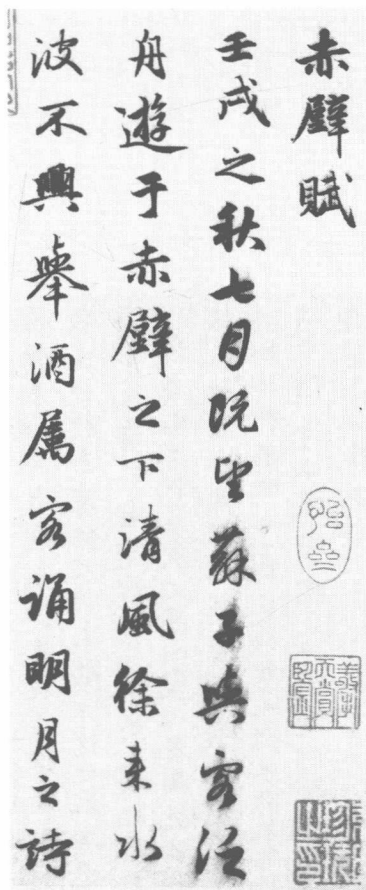 赤壁賦
壬戌之秋七月既望蘇子與客泛
舟遊于赤壁之下清風徐来水
波不興舉酒屬客誦明月之詩